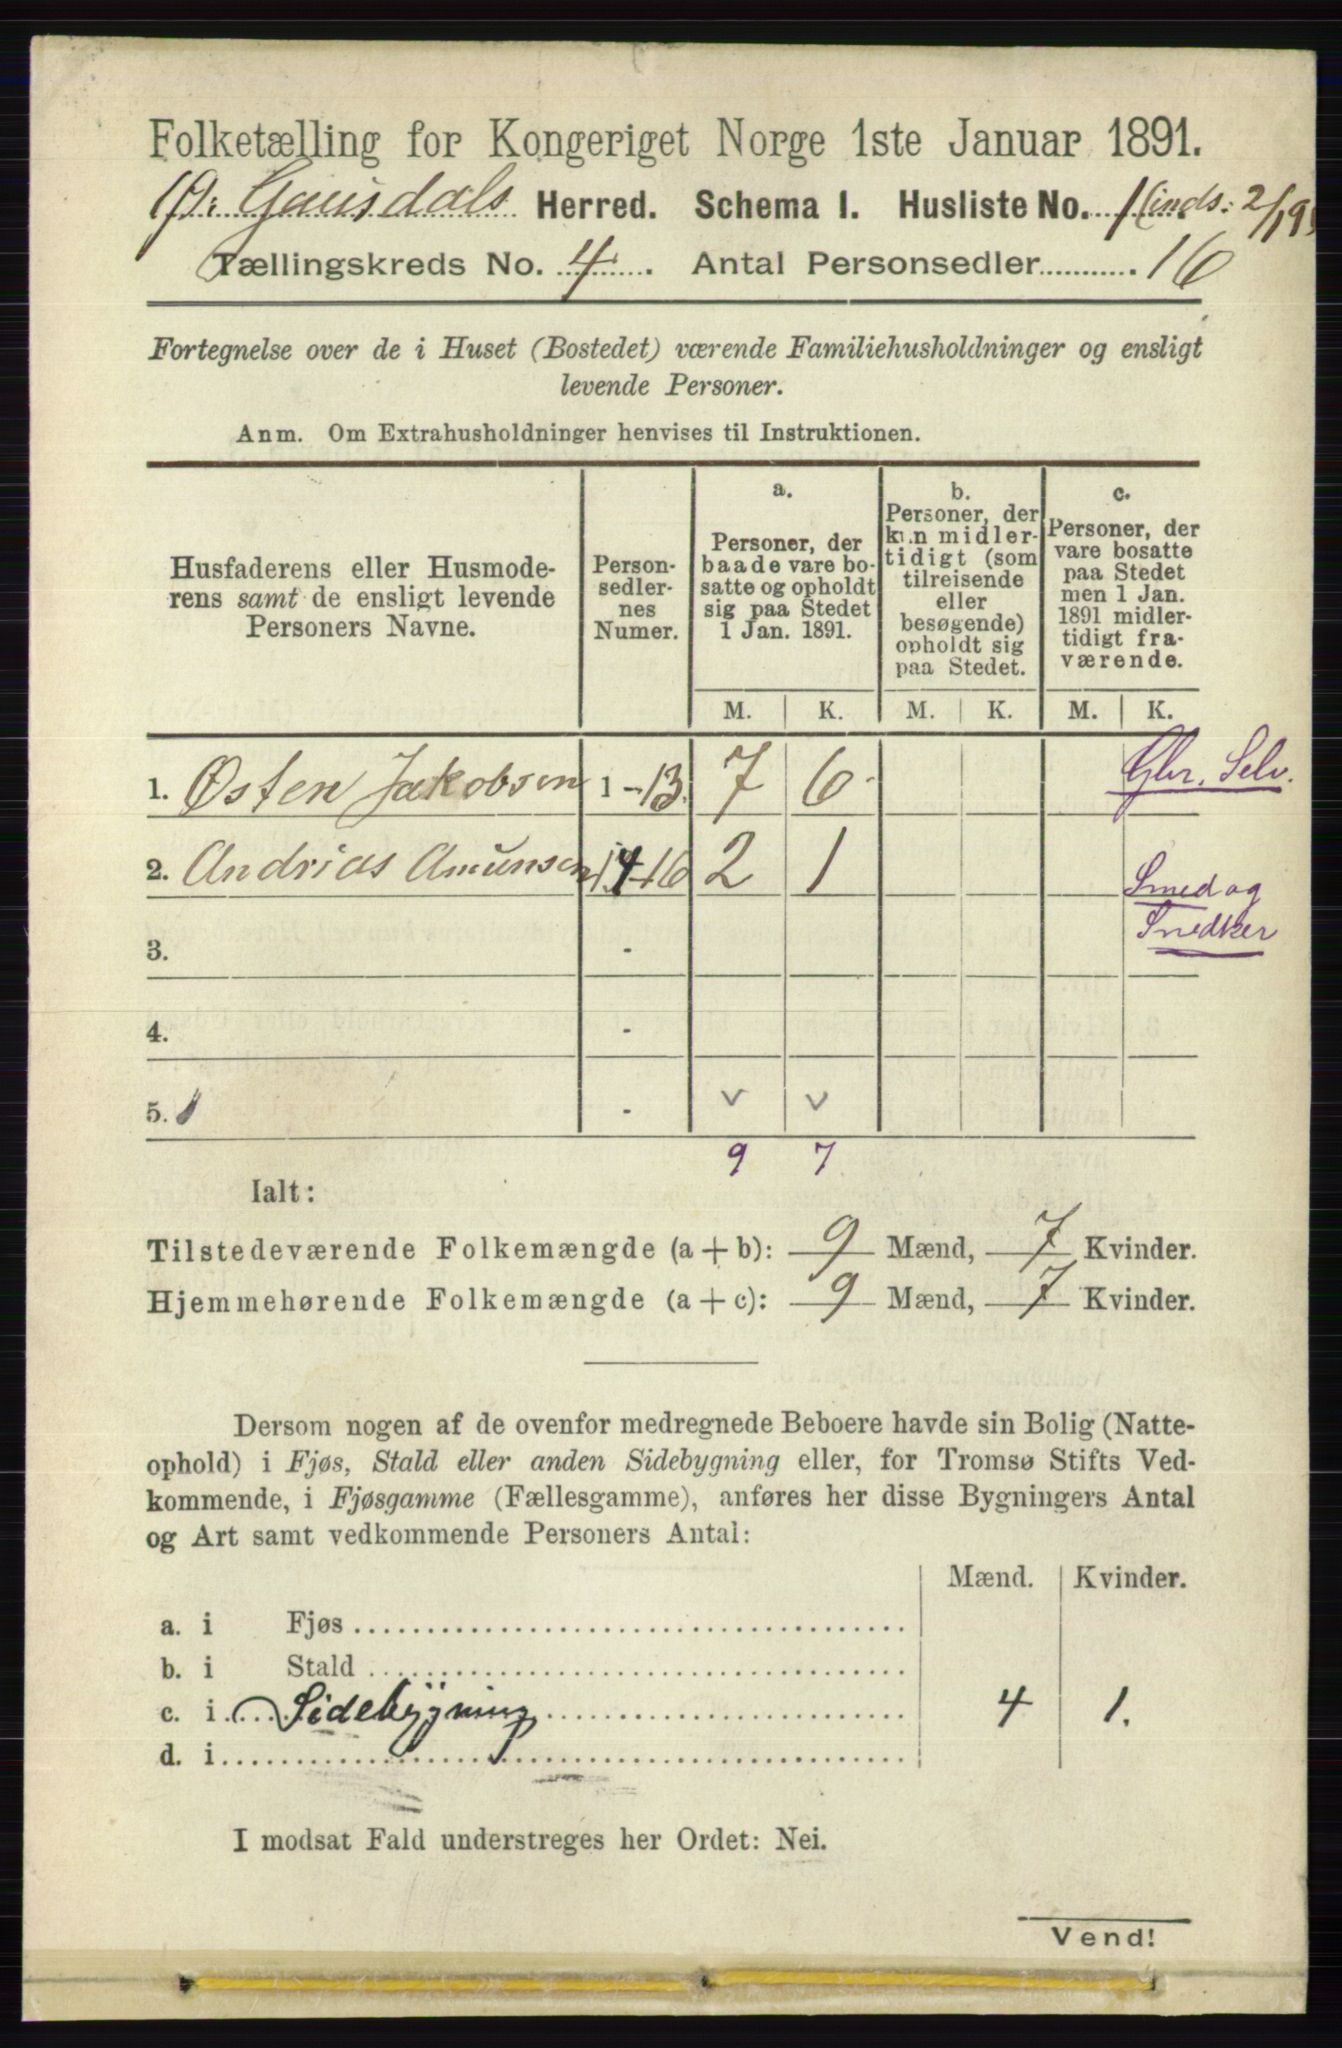 Folketælling for Kongeriget Norge 1ste Januar 1891.
Ø. Gausdals Herred. Schema 1. Husliste No. 1
Tællingskreds No. 4. Antal Personsedler 16
Fortegnelse over de i Huset (Bostedet) værende Familiehusholdninger og ensligt
levende Personer.
Anm. Om Extrahusholdninger henvises til Instruktionen.
Husfaderens eller Husmode-
rens samt de ensligt levende
Personers Navne.
Person-
sedler-
nes
Numer.
a.
Personer, der
baade vare bo-
satte og opholdt
sig paa Stedet
1 Jan. 1891.
b.
Personer, der
kun midler-
tidigt (som
tilreisende
eller
besøgende)
opholdt sig
paa Stedet.
c.
Personer, der
vare bosatte
paa Stedet
men 1 Jan.
1891 midler-
tidigt fra-
værende.
M. K. M. K. M. K.
1. Østen Jakobsen 1-13. 7 6 Gbr. Selv.
2. Andrias Amunsen 14-16 2 1 Smed og
Snedker
3. -
4. -
5. - v v
9 7
Ialt:
Tilstedeværende Folkemængde (a + b): 9 Mænd, 7 Kvinder.
Hjemmehørende Folkemængde (a + c): 9 Mænd, 7 Kvinder.
Dersom nogen af de ovenfor medregnede Beboere havde sin Bolig (Natte-
ophold) i Fjøs, Stald eller anden Sidebygning eller, for Tromsø Stifts Ved-
kommende, i Fjøsgamme (Fællesgamme), anføres her disse Bygningers Antal
og Art samt vedkommende Personers Antal:
Mænd. Kvinder.
a. i Fjøs
b. i Stald
c. i Sidebygning 4 1.
d. i
I modsat Fald understreges her Ordet: Nei.
Vend!